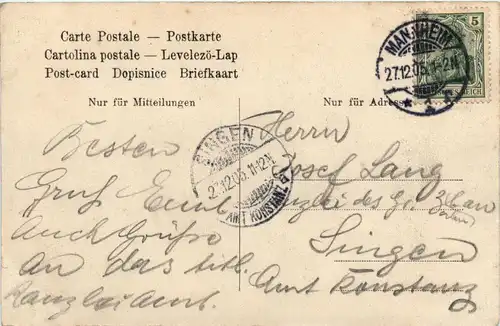 Carte Postale — Postkarte
Cartolina postale — Levelezö-Lap
Post-card Dopisnice Briefkaart
5
MANNHEIM
27.12.05.11-12N
* 1 *
Nur für Mitteilungen
Nur für Adresse
SINGEN
27.12.05.11-12N
AMT KONSTANZ
Besten
Gruß
Auch Grüße
an das titl.
Kanzleiamt.
Herrn
Josef Lang
Kanzlei des Gr.
Singen
Amt Konstanz